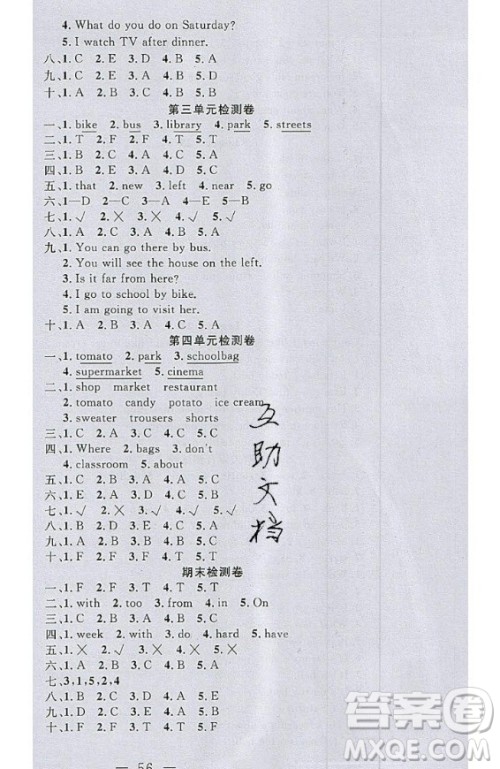 4. What do you do on Saturday?
5. I watch TV after dinner.
八、1. C 2. E 3. D 4. B 5. A
十、1. C 2. D 3. A 4. B 5. C
第三单元检测卷
一、1. bike 2. bus 3. library 4. park 5. streets
二、1. T 2. F 3. F 4. T 5. T
三、1. B 2. C 3. A 4. A 5. C
四、1. B 2. E 3. D 4. C 5. A
五、1. that 2. new 3. left 4. near 5. go
六、1—D 2—C 3—B 4—A 5—E
七、1. √ 2. × 3. × 4. √ 5. √
八、1. A 2. C 3. D 4. B 5. C
九、1. You can go there by bus.
2. You will see the house on the left.
3. Is it far from here?
4. I go to school by bike.
5. I am going to visit her.
十、1. A 2. B 3. C 4. C 5. A
第四单元检测卷
一、1. tomato 2. park 3. schoolbag
4. supermarket 5. cinema
二、1. shop market restaurant
2. tomato candy potato ice cream
3. sweater trousers shorts
三、1. B 2. C 3. A 4. B 5. A
四、1. Where 2. bags 3. don't
4. classroom 5. about
五、1. C 2. B 3. A 4. B 5. C
六、1. D 2. B 3. A 4. E 5. C
七、1. √ 2. × 3. × 4. √ 5. √
八、1. C 2. A 3. D 4. B 5. E
九、1. A 2. C 3. B 4. A 5. A
十、1. F 2. F 3. T 4. T 5. F
期末检测卷
一、1. F 2. F 3. T 4. T 5. T
二、1. with 2. too 3. from 4. in 5. On
三、1. C 2. B 3. B 4. A 5. C
四、1. week 2. with 3. do 4. hard 5. have
五、1. × 2. √ 3. × 4. × 5. √
六、1. A 2. A 3. C 4. B 5. A
七、3,1,5,2,4
八、1. C 2. B 3. D 4. A 5. E
九、1. B 2. C 3. A 4. B 5. C
十、1. F 2. F 3. T 4. T 5. F
— 56 —
互助文档
答案圈
MXQE.COM